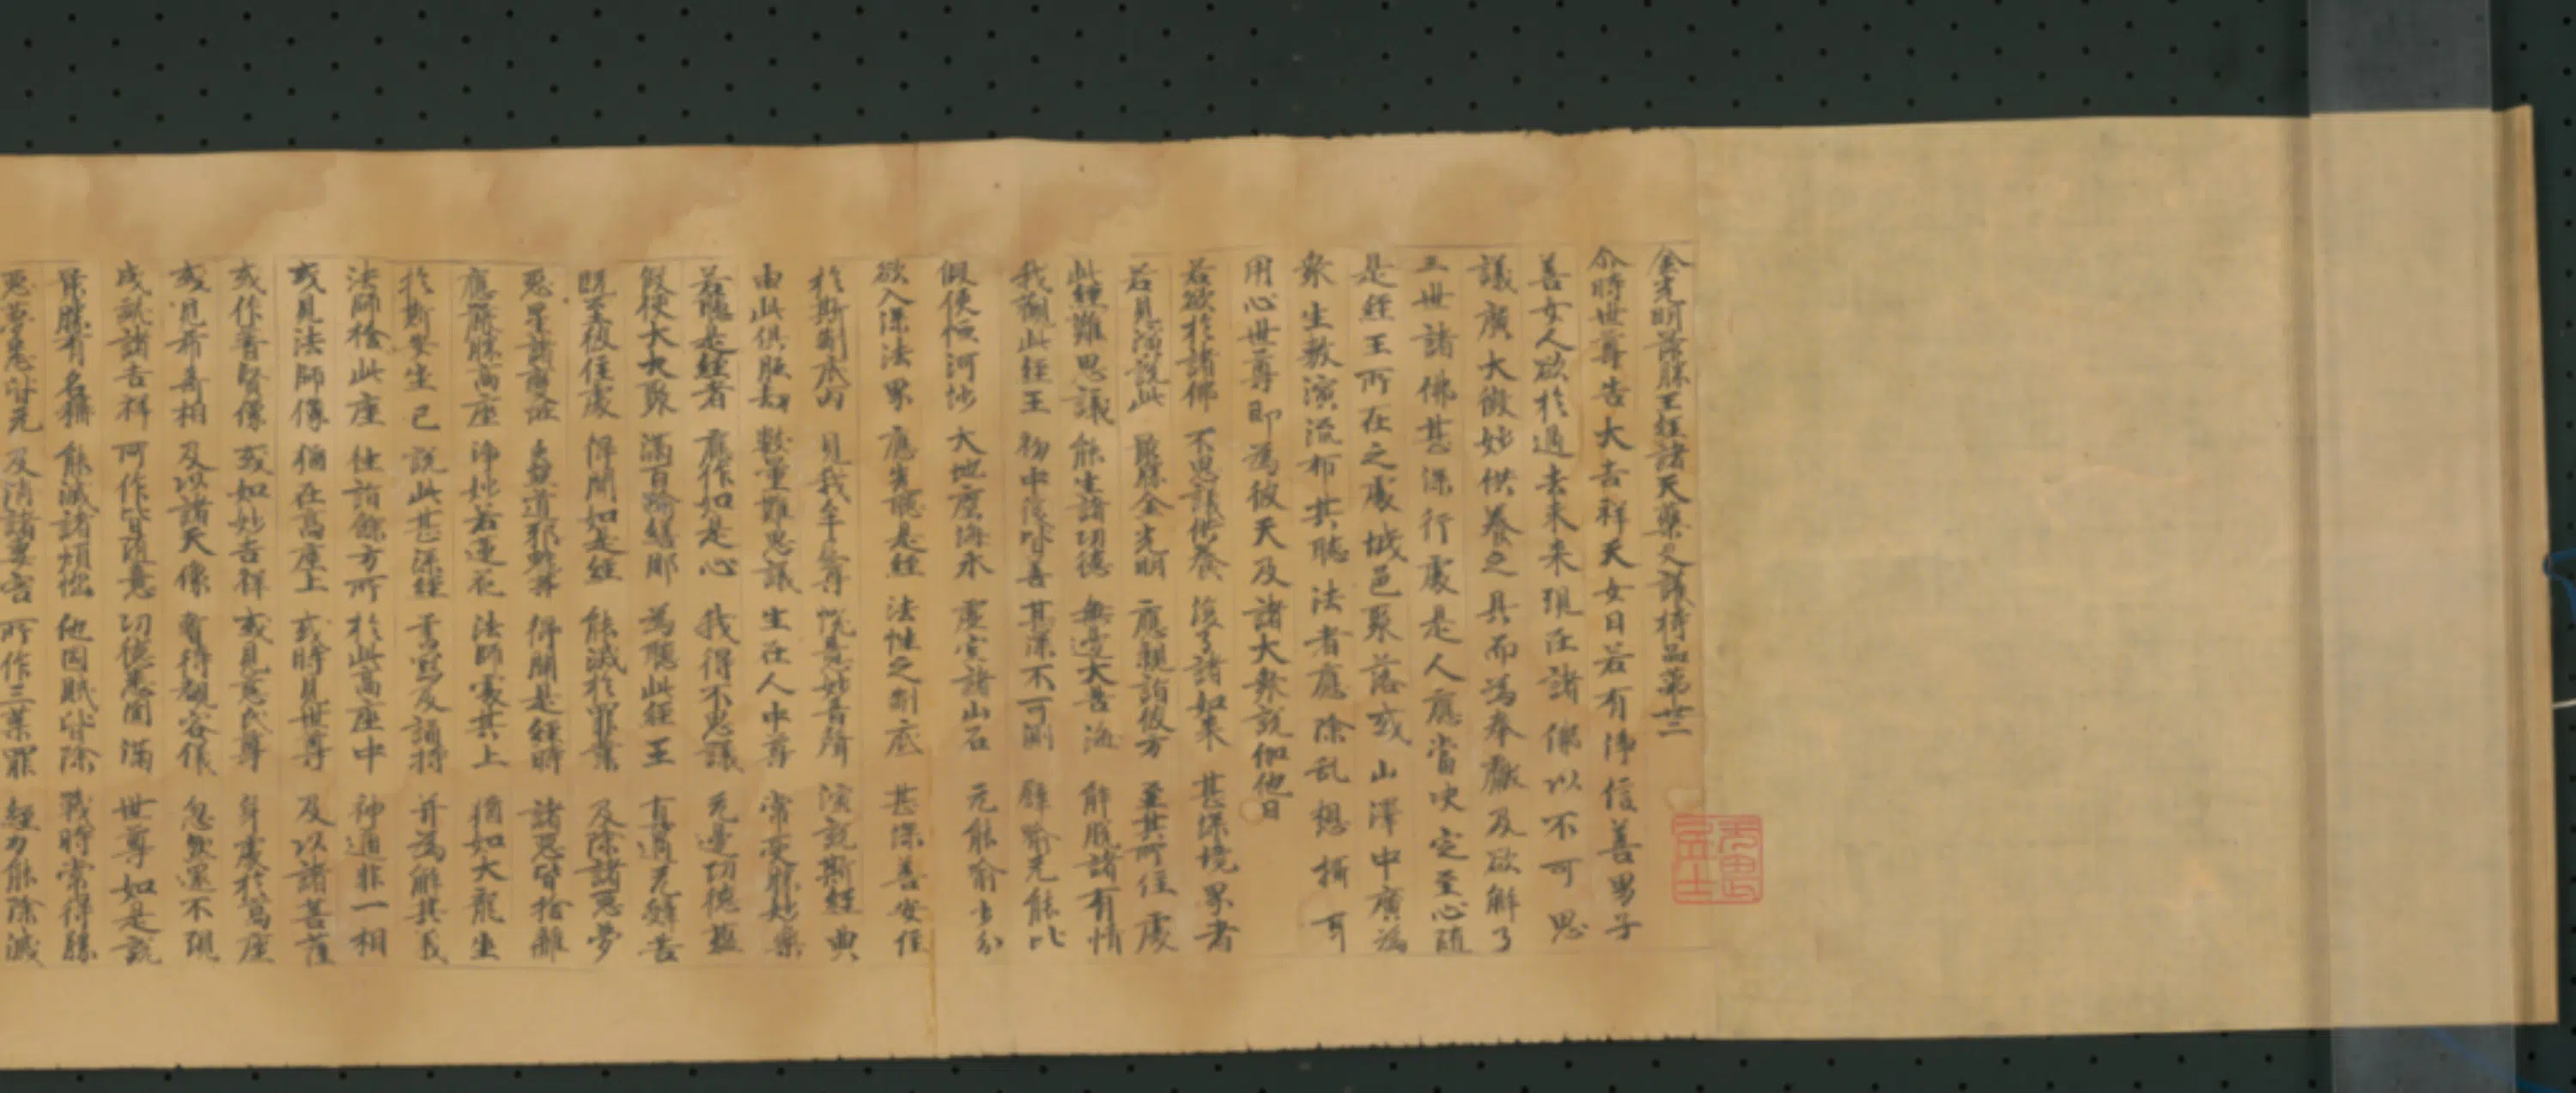 金光明最勝王經諸天藥叉護持品第廿二
尒時世尊告大吉祥天女曰若有淨信善男子
善女人欲於過去未来現在諸佛以不可思
議廣大微妙供養之具而為奉獻及欲解了
三世諸佛甚深行處是人應當决定至心隨
是經王所在之處城邑聚落或山澤中廣為
衆生敷演流布其聽法者應除乱想攝耳
用心世尊即為彼天及諸大衆說伽他曰
若欲於諸佛 不思議供養 復了諸如来 甚深境界者
若見演說此 最勝金光明 應親詣彼方 至其所住處
此經難思議 能生諸功德 無邊大苦海 解脫諸有情
我觀此經王 初中後皆善 甚深不可測 譬喻无能比
假使恒河沙 大地塵海水 虛空諸山石 无能喻少分
欲入深法界 應先聽是經 法性之制底 甚深善安住
於斯制底內 見我牟尼尊 悅意妙音聲 演說斯經典
由此俱胝劫 數量難思議 生在人中尊 常受勝妙樂
若聽是經者 應作如是心 我得不思議 无邊功德蘊
假使大火聚 滿百踰繕那 為聽此經王 直過无辭苦
既至彼住處 得聞如是經 能滅於罪業 及除諸惡夢
惡星諸變恠 蠱道邪魅等 得聞是經時 諸惡皆捨離
應嚴勝高座 淨妙若蓮花 法師處其上 猶如大龍坐
於斯安坐已 說此甚深經 書寫及誦持 并為解其義
法師捨此座 往詣餘方所 於此高座中 神通非一相
或見法師像 猶在高座上 或時見世尊 及以諸菩薩
或作普賢像 或如妙吉祥 或見慈氏尊 身處於高座
或見希奇相 及以諸天像 暫得覩容儀 忽然還不現
成就諸吉祥 所作皆隨意 功德悉圓滿 世尊如是說
最勝有名稱 能滅諸煩惱 他國賊皆除 戰時常得勝
惡夢悉皆无 及消諸毒害 所作三業罪 經力能除滅